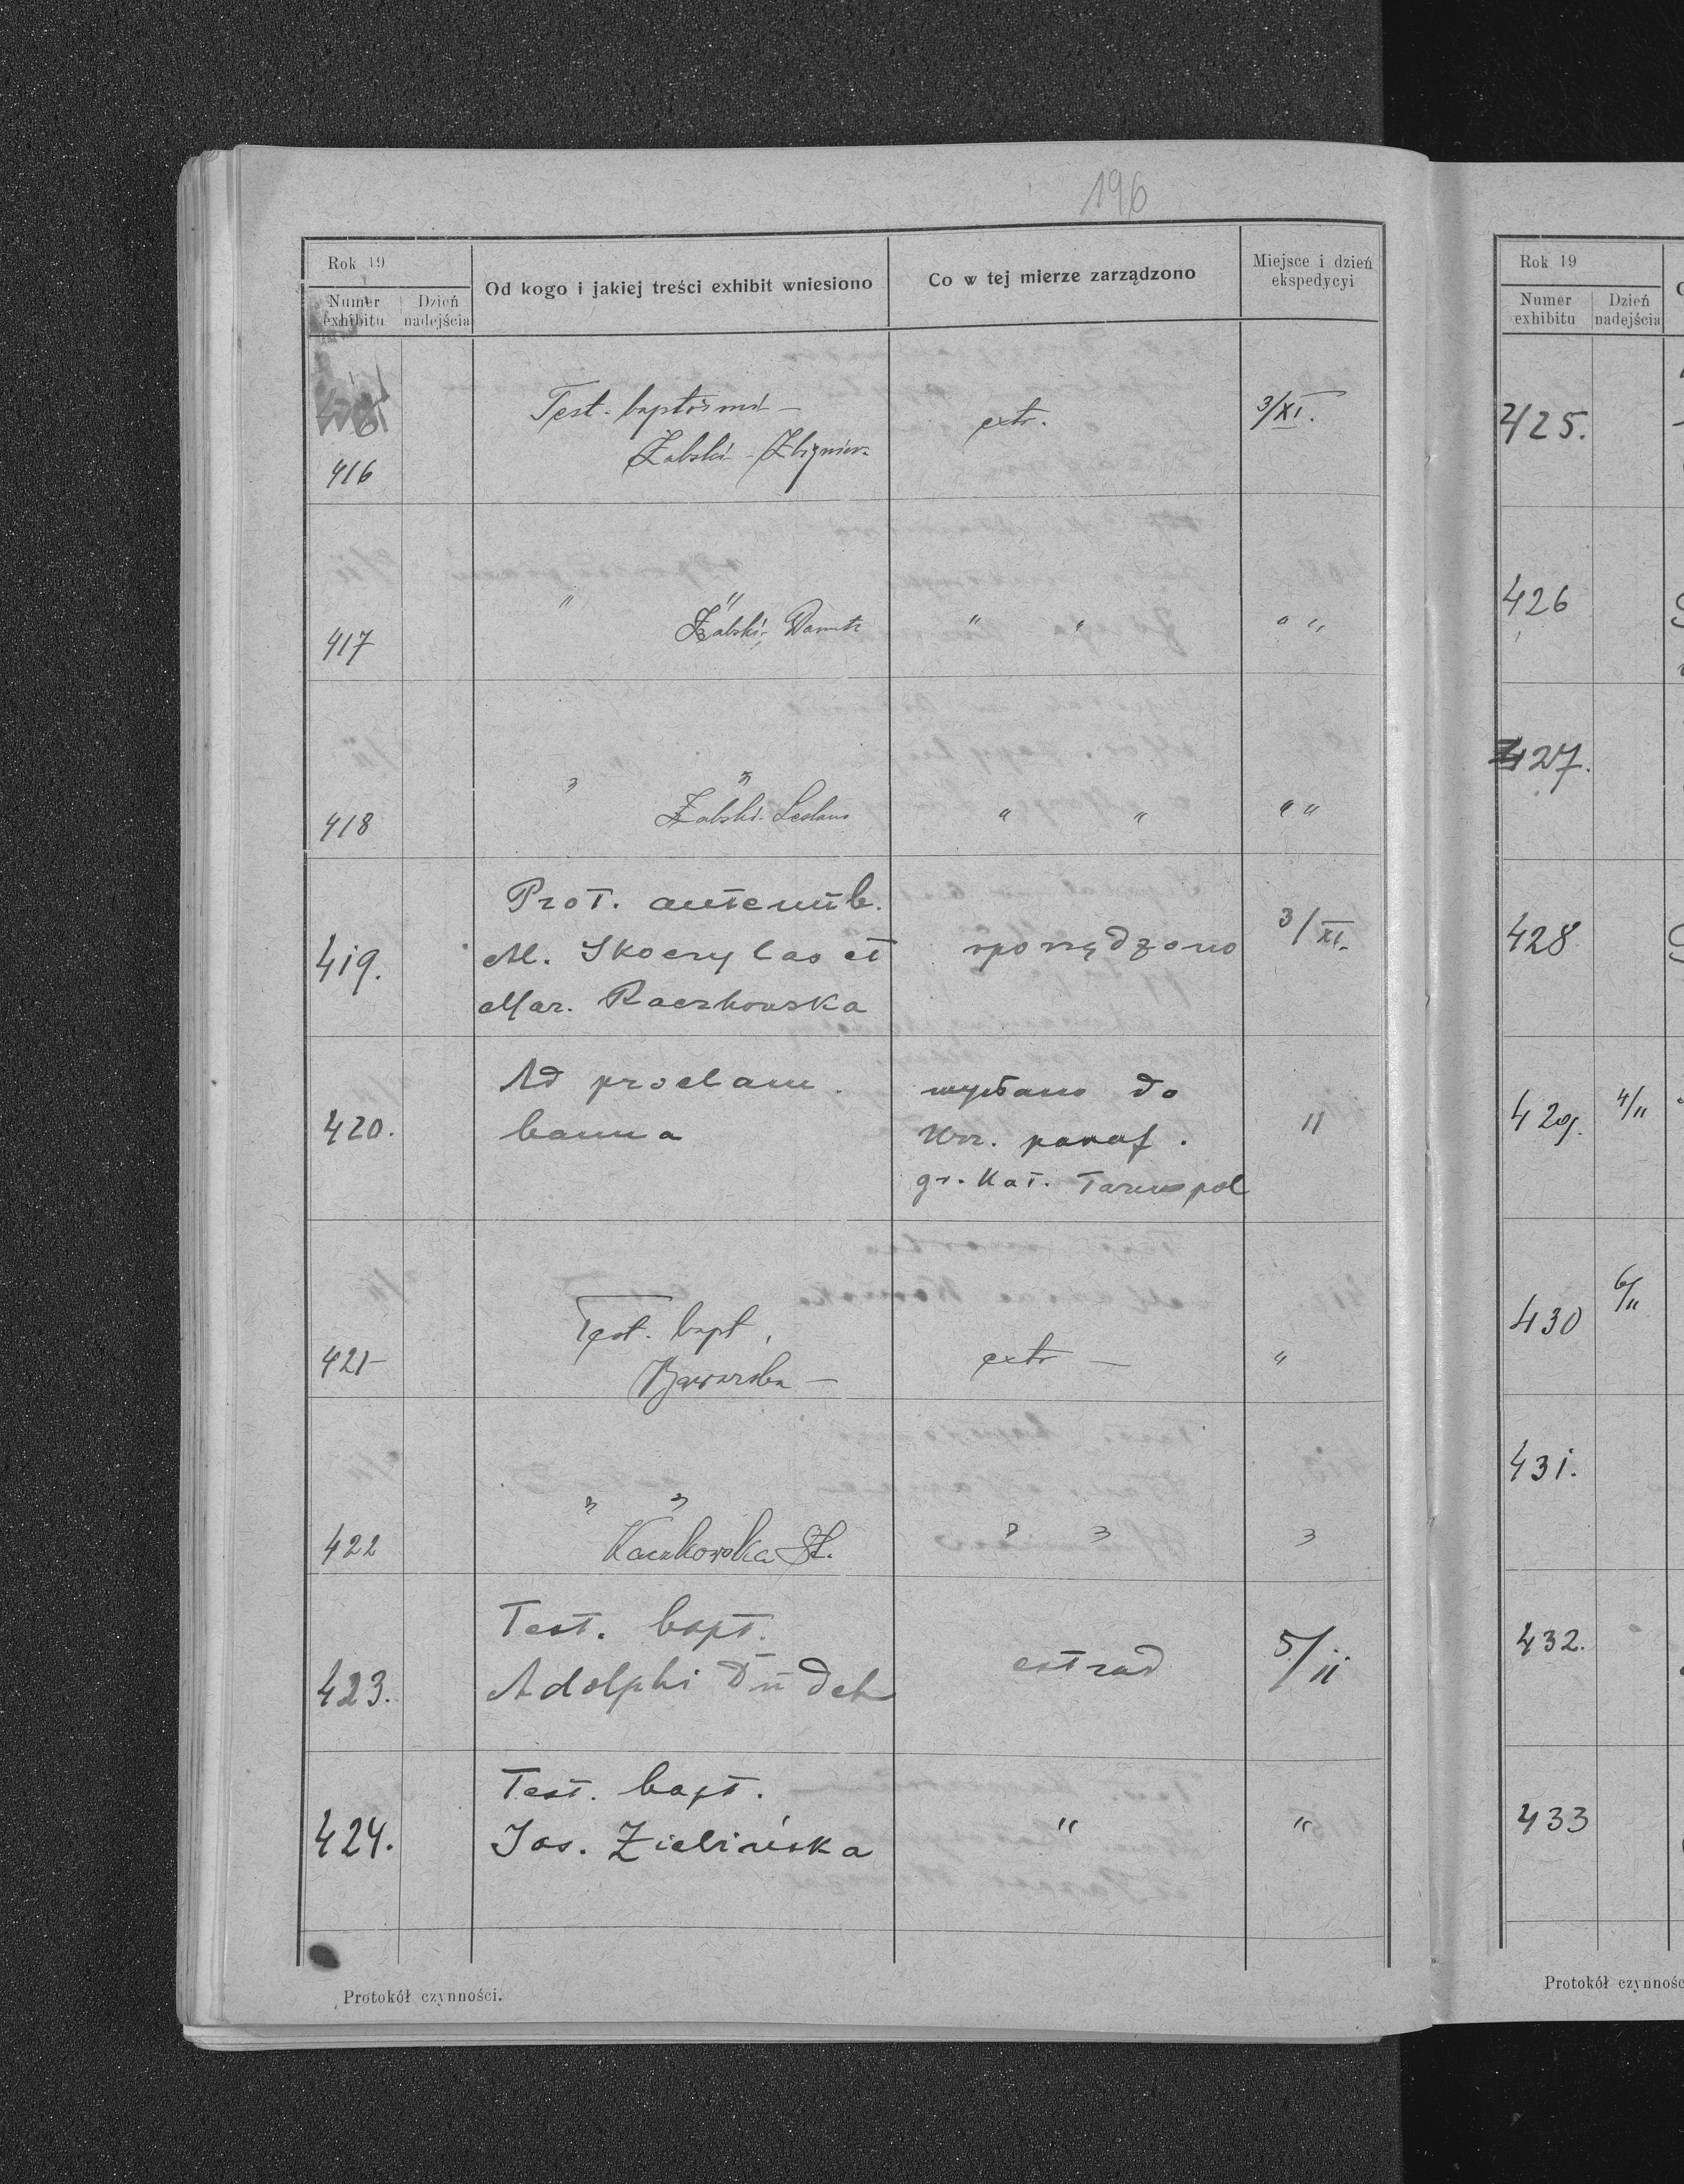 196
Rok 19
Numer exhibitu
Dzień nadejścia
Od kogo i jakiej treści exhibit wniesiono
Co w tej mierze zarządzono
Miejsce i dzień ekspedycyi
416
Test. baptismi –
extr.
3/XI.
Żabski - Zbigniew
417
" "
Żabski, Danuta
" "
" "
418
" "
Żabski Lesław
" "
" "
419.
Prot. antenub.
M. Skoczylas et
Mar. Raczkowska
sporządzono
3/XI.
420.
Ad proclam.
banna
wysłano do
Urz. paraf.
gr. Kat. Tarnopol
"
421
Test. bapt.
Baworska –
extr –
"
422
" "
Kaczkowska St.
" "
"
423.
Test. bapt.
Adolphi Dudek
estrad
5/11
424.
Test. bapt.
Jos. Zielińska
"
"
Protokół czynności.
Rok 19
Numer exhibitu
Dzień nadejścia
425.
426
427.
428
429.
4/11
430
6/11
431.
432.
433
Protokół czynnośc